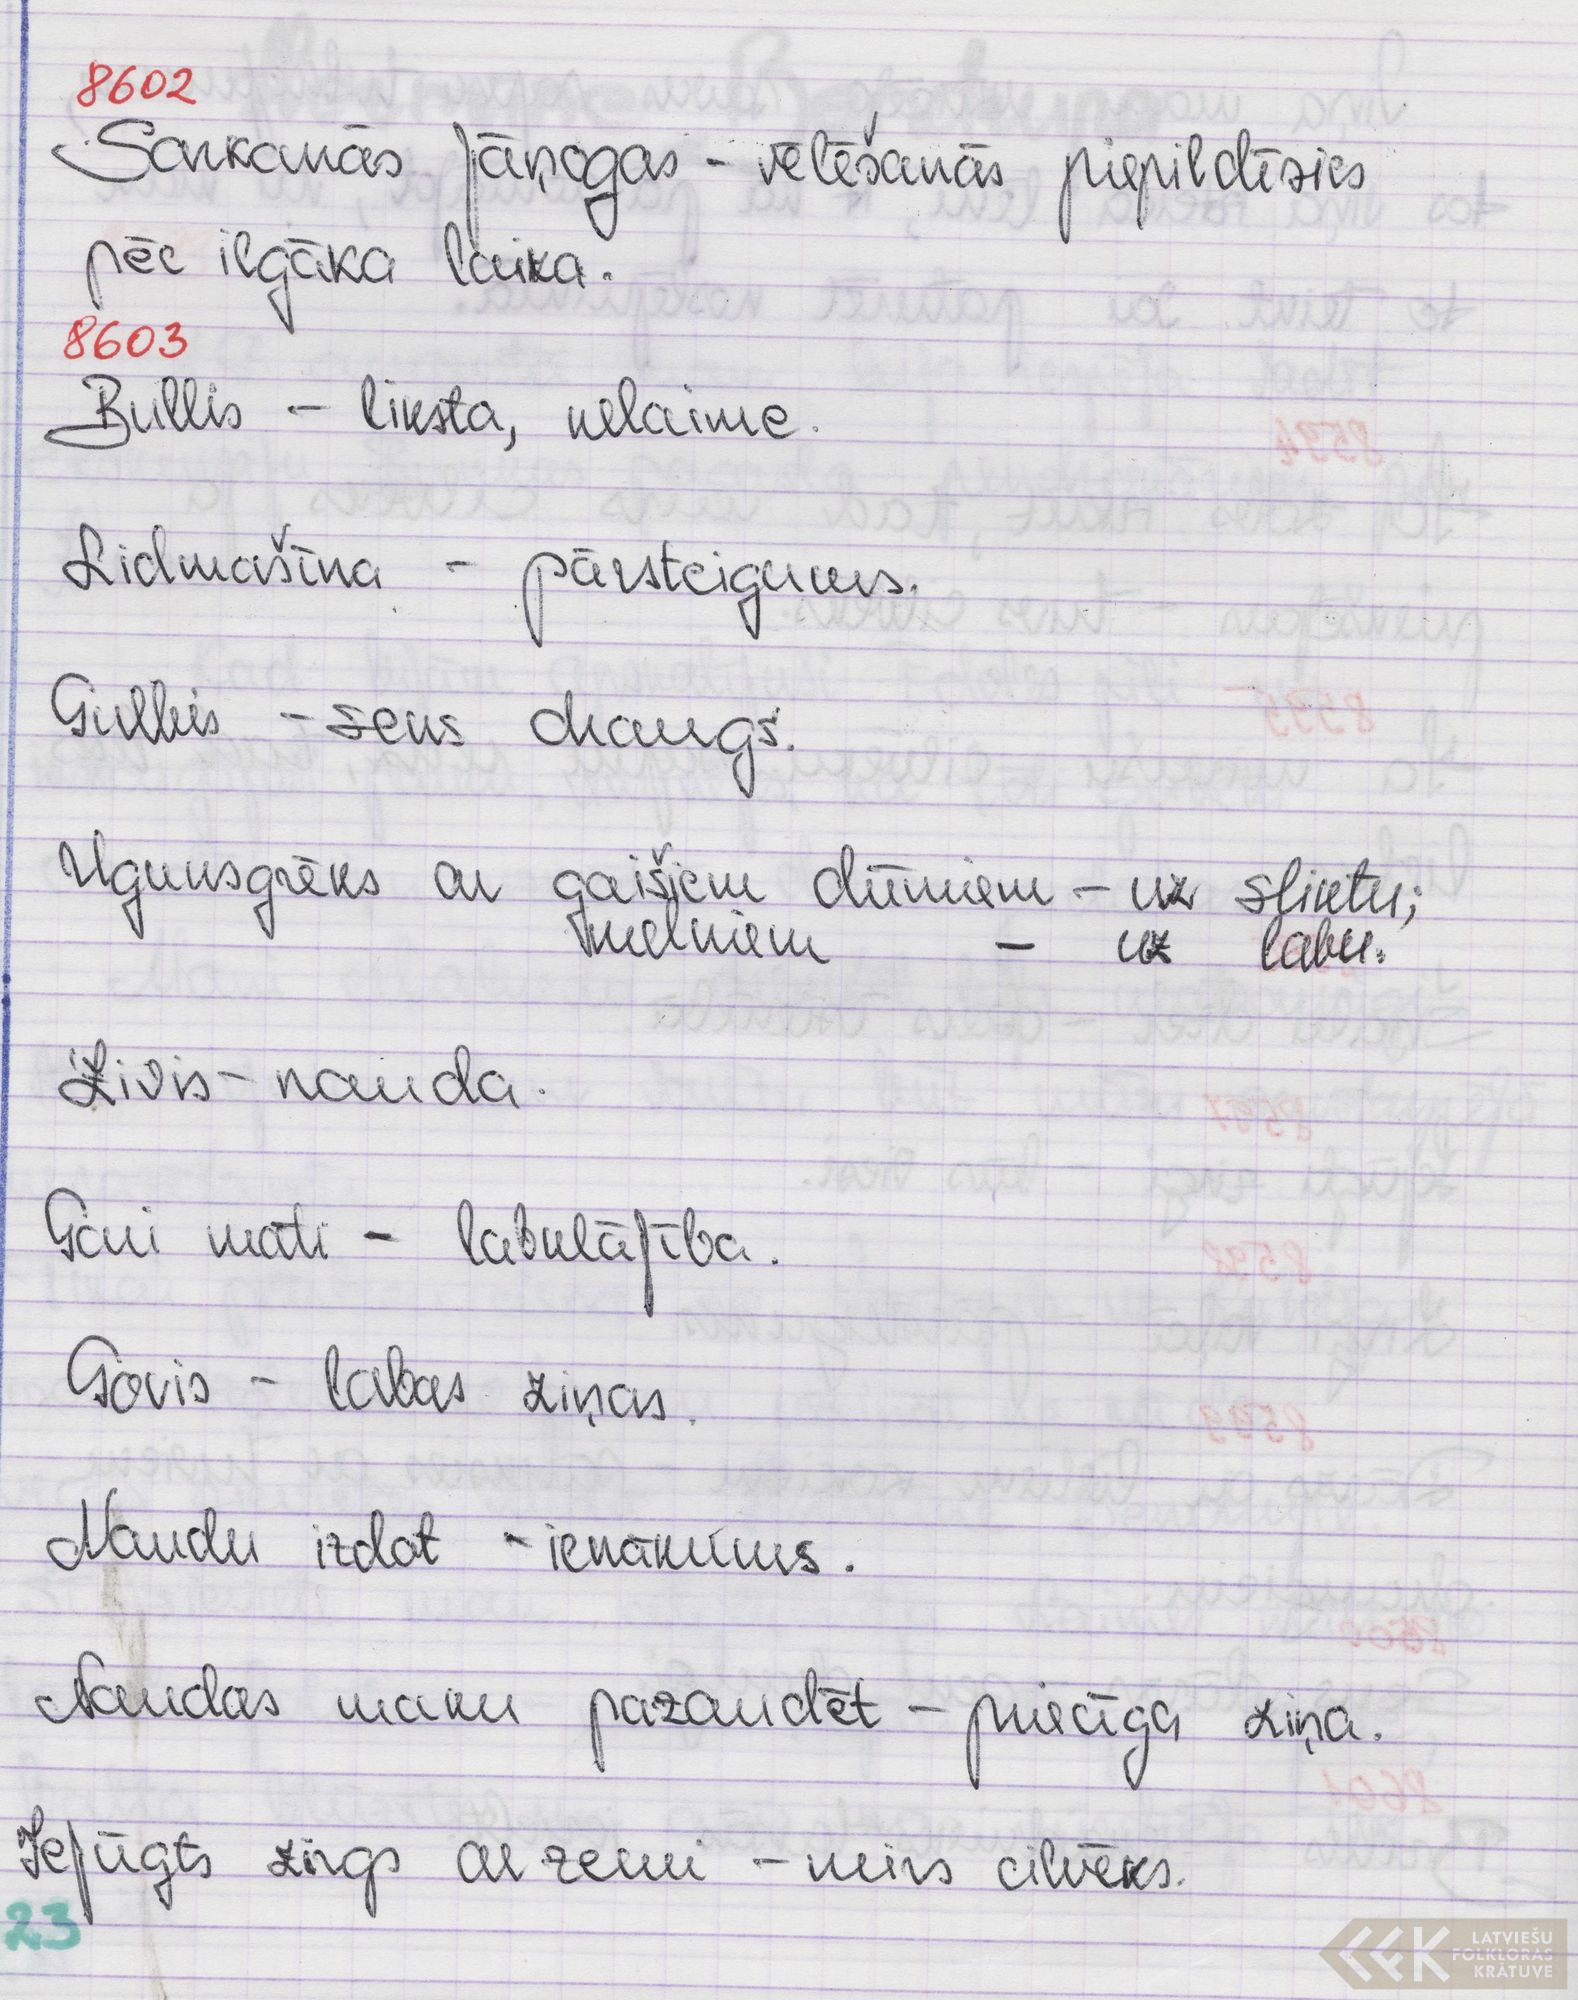 8602
Sarkanās jāņogas - vēlēšanās piepildīsies
pēc ilgāka laika.
8603
Bullis - liksta, nelaime.
Lidmašīna - pārsteigums.
Gulbis - sens draugs.
Ugunsgrēks ar gaišiem dūmiem - uz sliktu;
melniem - uz labu.
Zivis - nauda.
Gari mati - labklājība.
Govis - labas ziņas.
Naudu izdot - ienākums.
Naudas maku pazaudēt - priecīga ziņa.
Iejūgts zirgs ar zemi - miris cilvēks.
23
LATVIEŠU
FOLKLORAS
KRĀTUVE